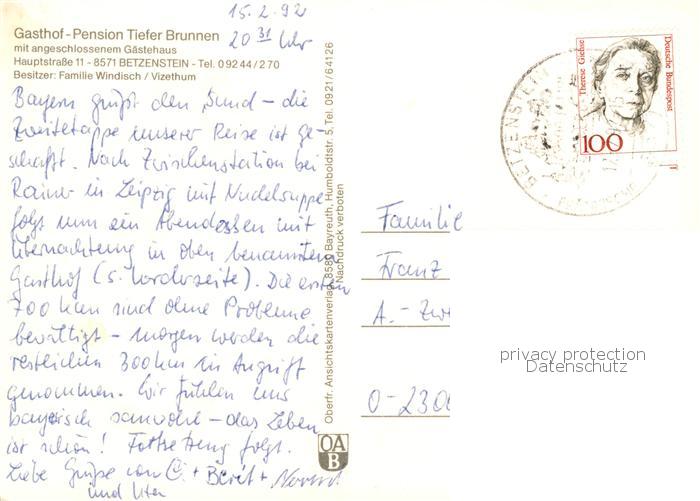 15.2.92
20 31 Uhr
Gasthof-Pension Tiefer Brunnen
mit angeschlossenem Gästehaus
Hauptstraße 11 - 8571 BETZENSTEIN - Tel. 09244/270
Besitzer: Familie Windisch / Vizethum
Bayern grüßt den Sund – die
Zweitetappe unserer Reise ist ge-
schafft. Nach Zwischenstation bei
Rainer in Leipzig mit Nudelsuppe
folgt nun ein Abendessen mit
Übernachtung in oben benannten
Gasthof (s. Vorderseite). Die ersten
700 km sind ohne Probleme
bewältigt – morgen werden die
restlichen 300 km in Angriff
genommen. Wir fühlen uns
bayrisch sauwohl – das Leben
ist schön! Fortsetzung folgt.
Liebe Grüße von C. + Berit +
und Uta
Oberfr. Ansichtskartenverlag, 8580 Bayreuth, Humboldtstr. 5, Tel. 0921/64126
Nachdruck verboten
OA
B
Therese Giehse
Deutsche Bundespost
100
BETZENSTEIN
Familie
Franz
A.-Zw
O-230
privacy protection
Datenschutz